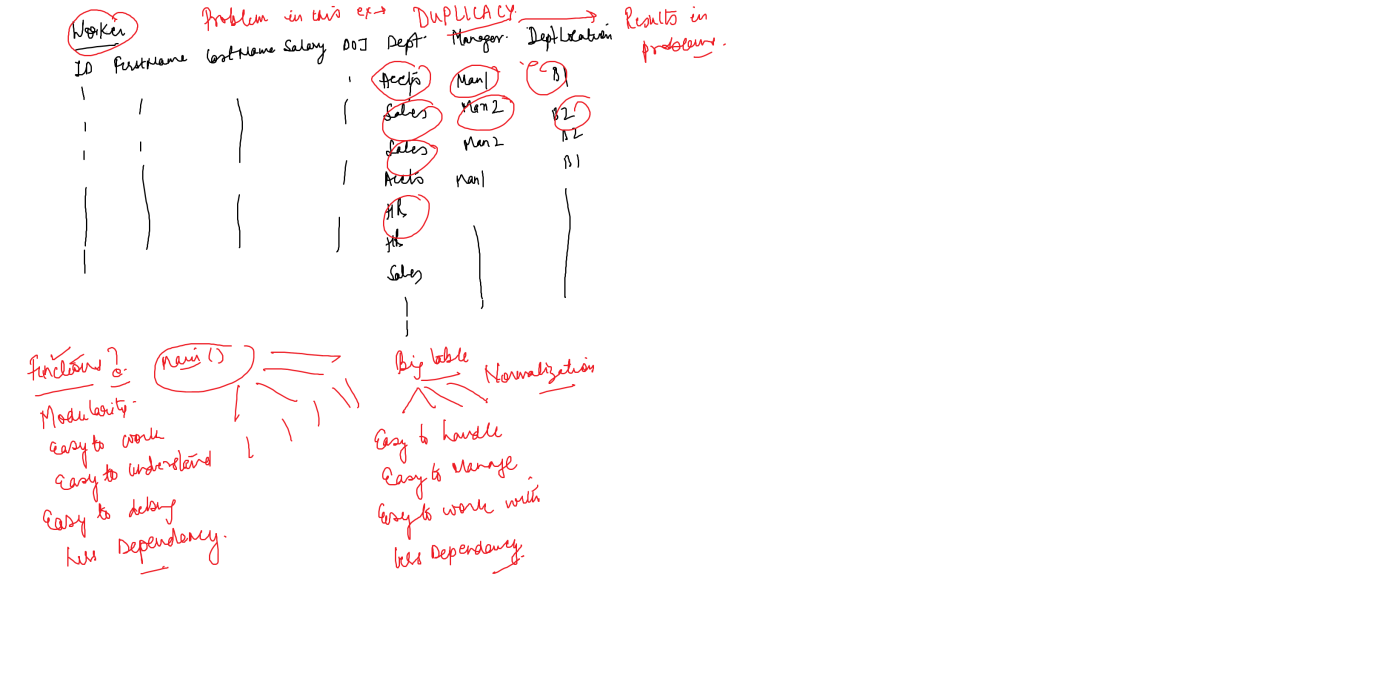 Worker Problem in this ex → DUPLICACY. → Results in
problems.
ID FirstName LastName Salary DOJ Dept. Manager. DeptLocation
Accts Man1 B1
Sales Man2 B2
Sales Man2 B2
Accts Man1 B1
HR
HR
Sales
Functions? main()
Modularity.
Easy to work
Easy to understand
Easy to debug
Less Dependency.
Big table Normalization
Easy to handle
Easy to Manage
Easy to work with
Less Dependency.